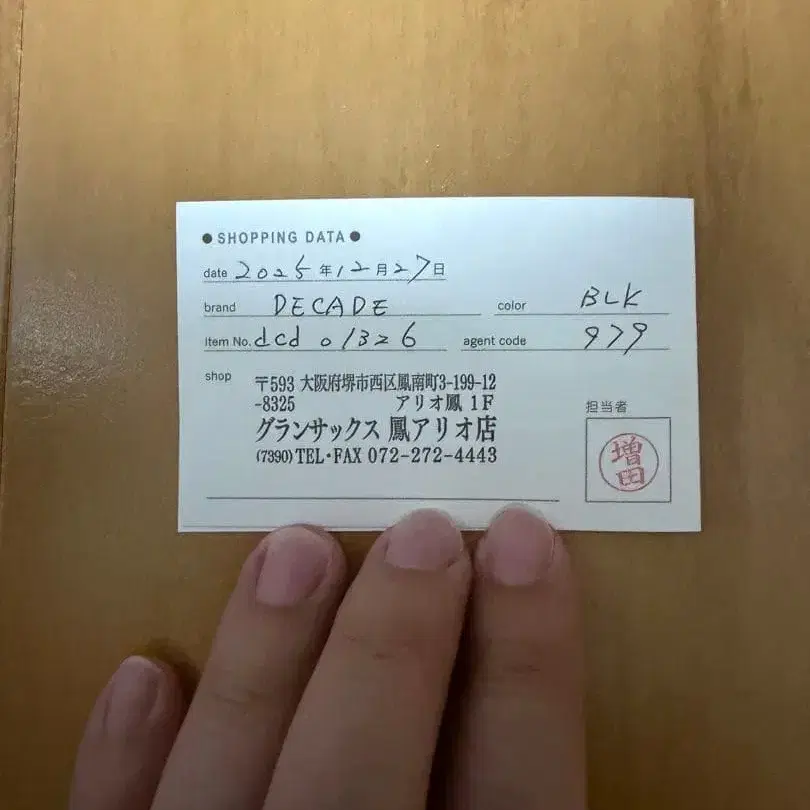 ●SHOPPING DATA●
date 2025年12月27日
brand DECADE color BLK
Item No. dcd 01326 agent code 979
shop
〒593 大阪府堺市西区鳳南町3-199-12
-8325 アリオ鳳 1F
グランサックス 鳳アリオ店
(7390) TEL・FAX 072-272-4443
担当者
増田